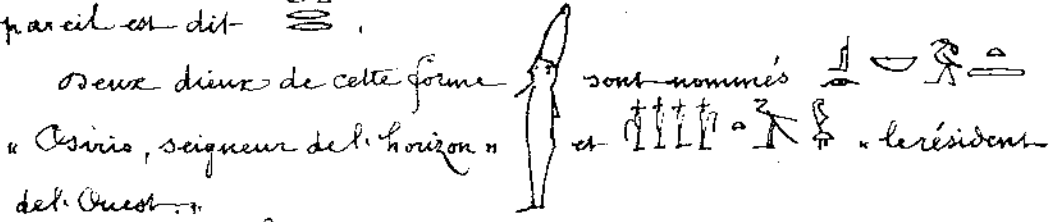 pareil est dit .
Deux dieux de cette forme sont nommés
« Osiris, seigneur de l'horizon » et « le résident
de l'Ouest. »